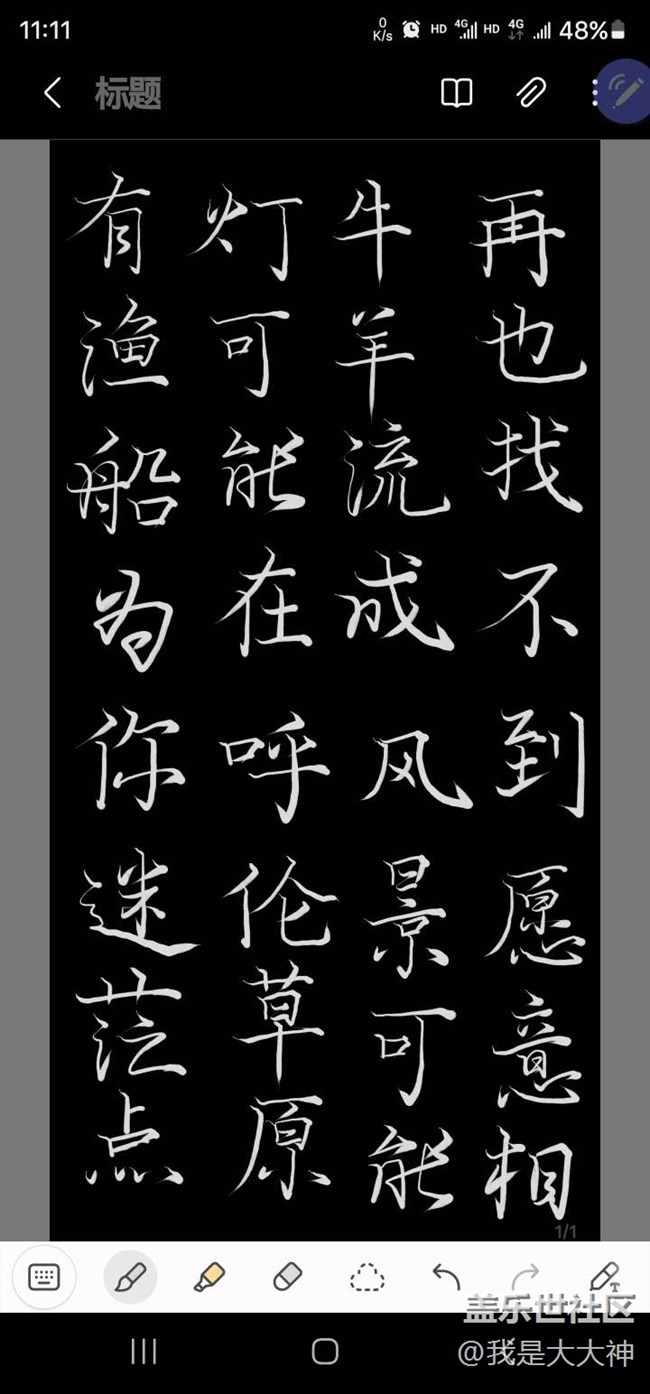 11:11
0 K/s HD 4G HD 4G 48%
标题
有渔船为你迷茫点
灯可能在呼伦草原
牛羊流成风景可能
再也找不到愿意相
1/1
T
盖乐世社区
@我是大大神